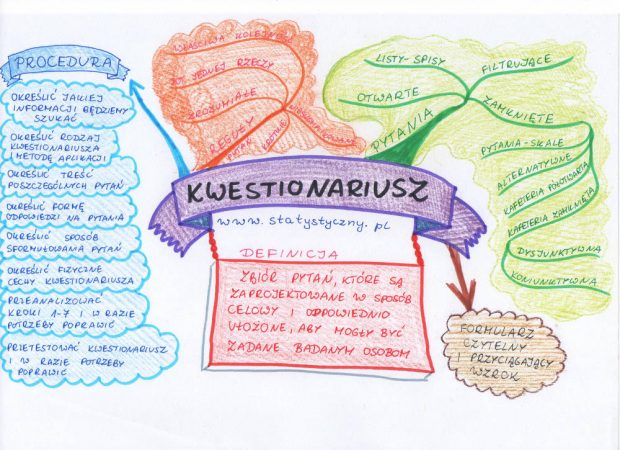 PROCEDURA
OKREŚLIĆ JAKIEJ
INFORMACJI BĘDZIEMY
SZUKAĆ
OKREŚLIĆ RODZAJ
KWESTIONARIUSZA I
METODĘ APLIKACJI
OKREŚLIĆ TREŚĆ
POSZCZEGÓLNYCH PYTAŃ
OKREŚLIĆ FORMĘ
ODPOWIEDZI NA PYTANIA
OKREŚLIĆ SPOSÓB
SFORMUŁOWANIA PYTAŃ
OKREŚLIĆ FIZYCZNE
CECHY KWESTIONARIUSZA
PRZEANALIZOWAĆ
KROKI 1-7 I W RAZIE
POTRZEBY POPRAWIĆ
PRETESTOWAĆ KWESTIONARIUSZ
I W RAZIE POTRZEBY
POPRAWIĆ
WŁAŚCIWA KOLEJNOŚĆ
JEDNEJ RZECZY
ZROZUMIAŁE
REGUŁY
PYTAŃ
KRÓTKIE
PYTANIA
LISTY-SPISY
OTWARTE
FILTRUJĄCE
ZAMKNIĘTE
PYTANIA-SKALE
ALTERNATYWNE
KAFETERIA PÓŁOTWARTA
KAFETERIA ZAMKNIĘTA
DYSJUNKTYWNA
KONIUNKTYWNA
KWESTIONARIUSZ
www.statystyczny.pl
DEFINICJA
ZBIÓR PYTAŃ, KTÓRE SĄ
ZAPROJEKTOWANE W SPOSÓB
CELOWY I ODPOWIEDNIO
UŁOŻONE, ABY MOGŁY BYĆ
ZADANE BADANYM OSOBOM
FORMULARZ
CZYTELNY
I PRZYCIĄGAJĄCY
WZROK